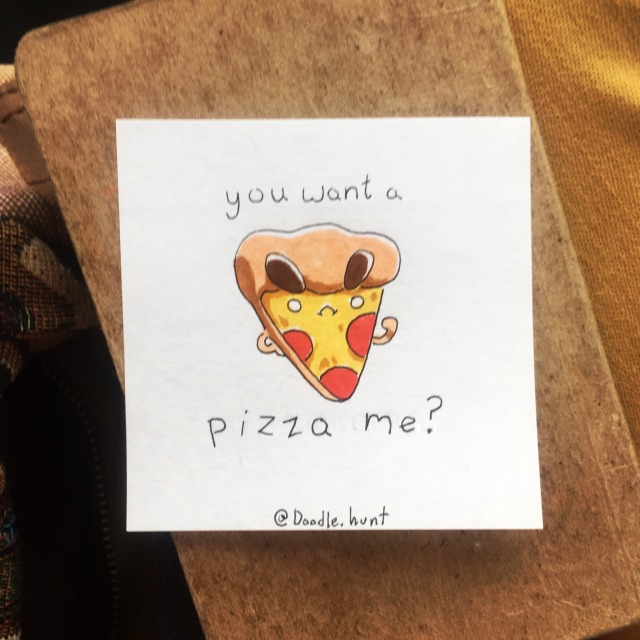 you want a
pizza me?
@Doodle.hunt